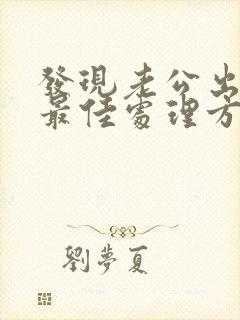 發現老公出
最佳處理方
劉夢夏